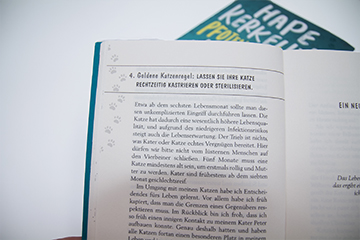 HAPE
KERKEL
PFOT
4. Goldene Katzenregel: LASSEN SIE IHRE KATZE
RECHTZEITIG KASTRIEREN ODER STERILISIEREN.
Etwa ab dem sechsten Lebensmonat sollte man das
unkomplizierten Eingriff durchführen lassen. Die
Katze hat dadurch eine wesentlich höhere Lebensqua-
lität, und aufgrund des niedrigeren Infektionsrisikos
steigt auch die Lebenserwartung. Der Trieb ist nichts,
was Kater oder Katze echtes Vergnügen bereitet. Hier
dürfen wir bitte nicht vom lüsternen Menschen auf
den Vierbeiner schließen. Fünf Monate muss eine
Katze mindestens alt sein, um erstmals rollig und Mut-
ter zu werden. Kater sind frühestens ab dem siebten
Monat geschlechtsreif.
Im Umgang mit meinen Katzen habe ich Entschei-
dendes fürs Leben gelernt. Vor allem habe ich früh
kapiert, dass man die Grenzen eines Gegenübers res-
pektieren muss. Im Rückblick bin ich froh, dass ich
so früh einen innigen Kontakt zu meinem Kater Peter
aufbauen konnte. Genau deshalb hatten und haben
alle Katzen fortan einen besonderen Platz in meinem
EIN NEU
Das Leb
das ergibt s
ich d